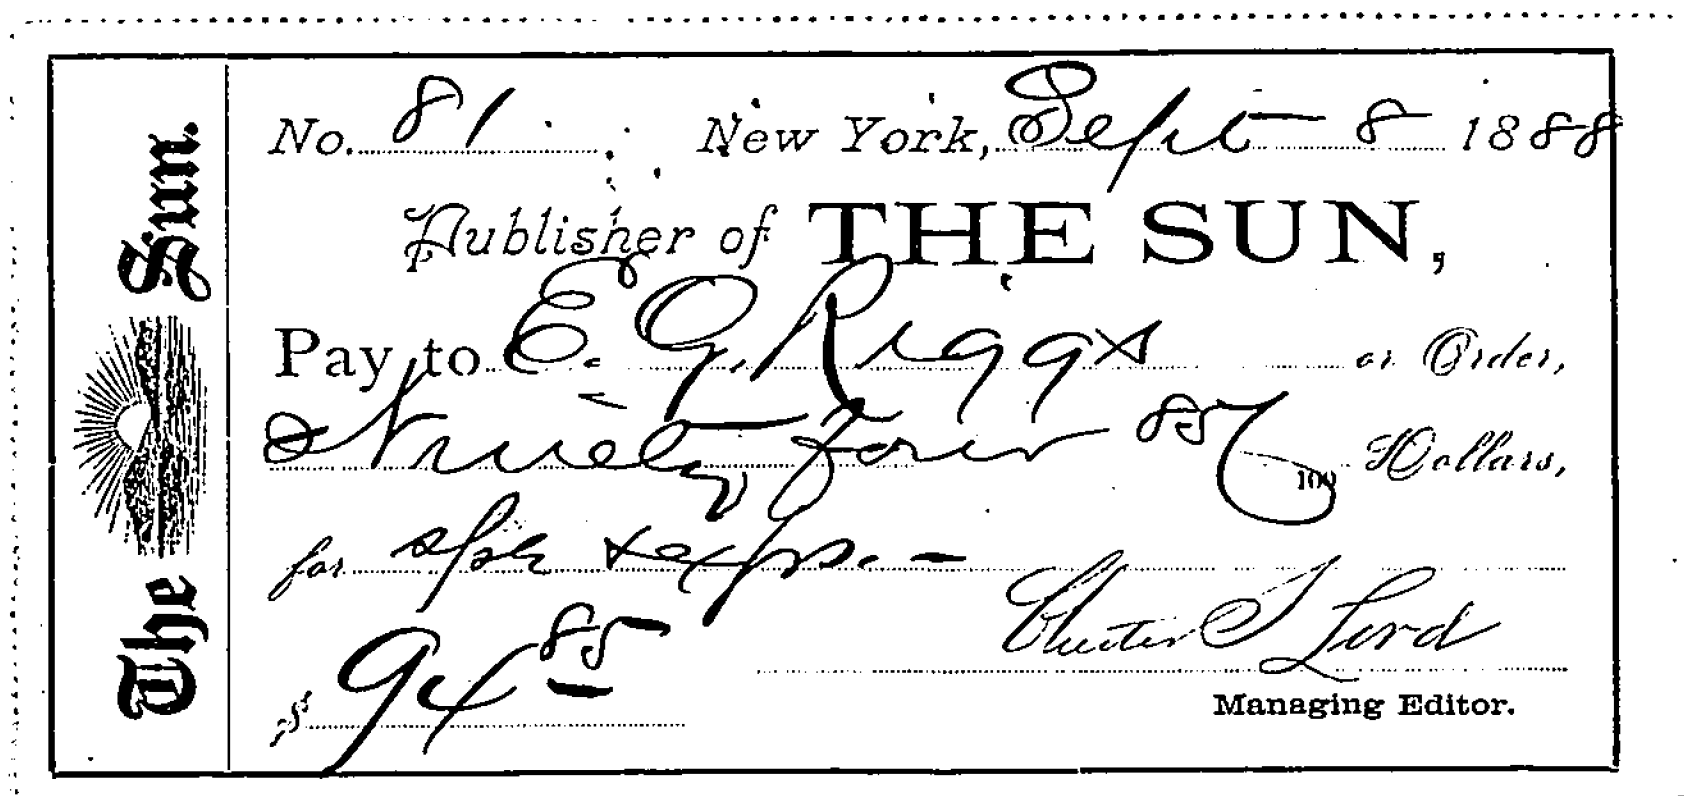 The Sun.
No. 81 New York, Sept 8 1888
Publisher of THE SUN,
Pay to E. G. Riggs or Order,
Ninety four 85/100 Dollars,
for spls & exps.
$ 94 85
Chester S Lord
Managing Editor.